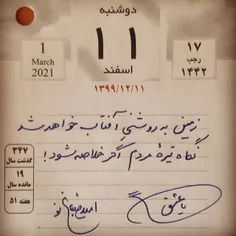 دوشنبه
1
March
2021
۱۱
اسفند
۱۳۹۹/۱۲/۱۱
۱۷
رجب
۱۴۴۲
زمینی به روشنی آفتاب خواهد شد
نگاه تیرهٔ مردم اگر خلاصه شود!
۳۴۷
گذشت سال
۱۹
مانده سال
هفته ۵۱
با عشق